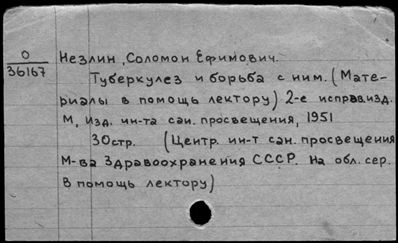 О
36167
Незлин, Соломон Ефимович.
Туберкулез и борьба с ним. (Мате-
риалы в помощь лектору) 2-е исправ.изд.
М, Изд. ин-та сан. просвещения, 1951
30стр. (Центр. ин-т сан. просвещения
М-ва Здравоохранения СССР. На обл. сер.
В помощь лектору)